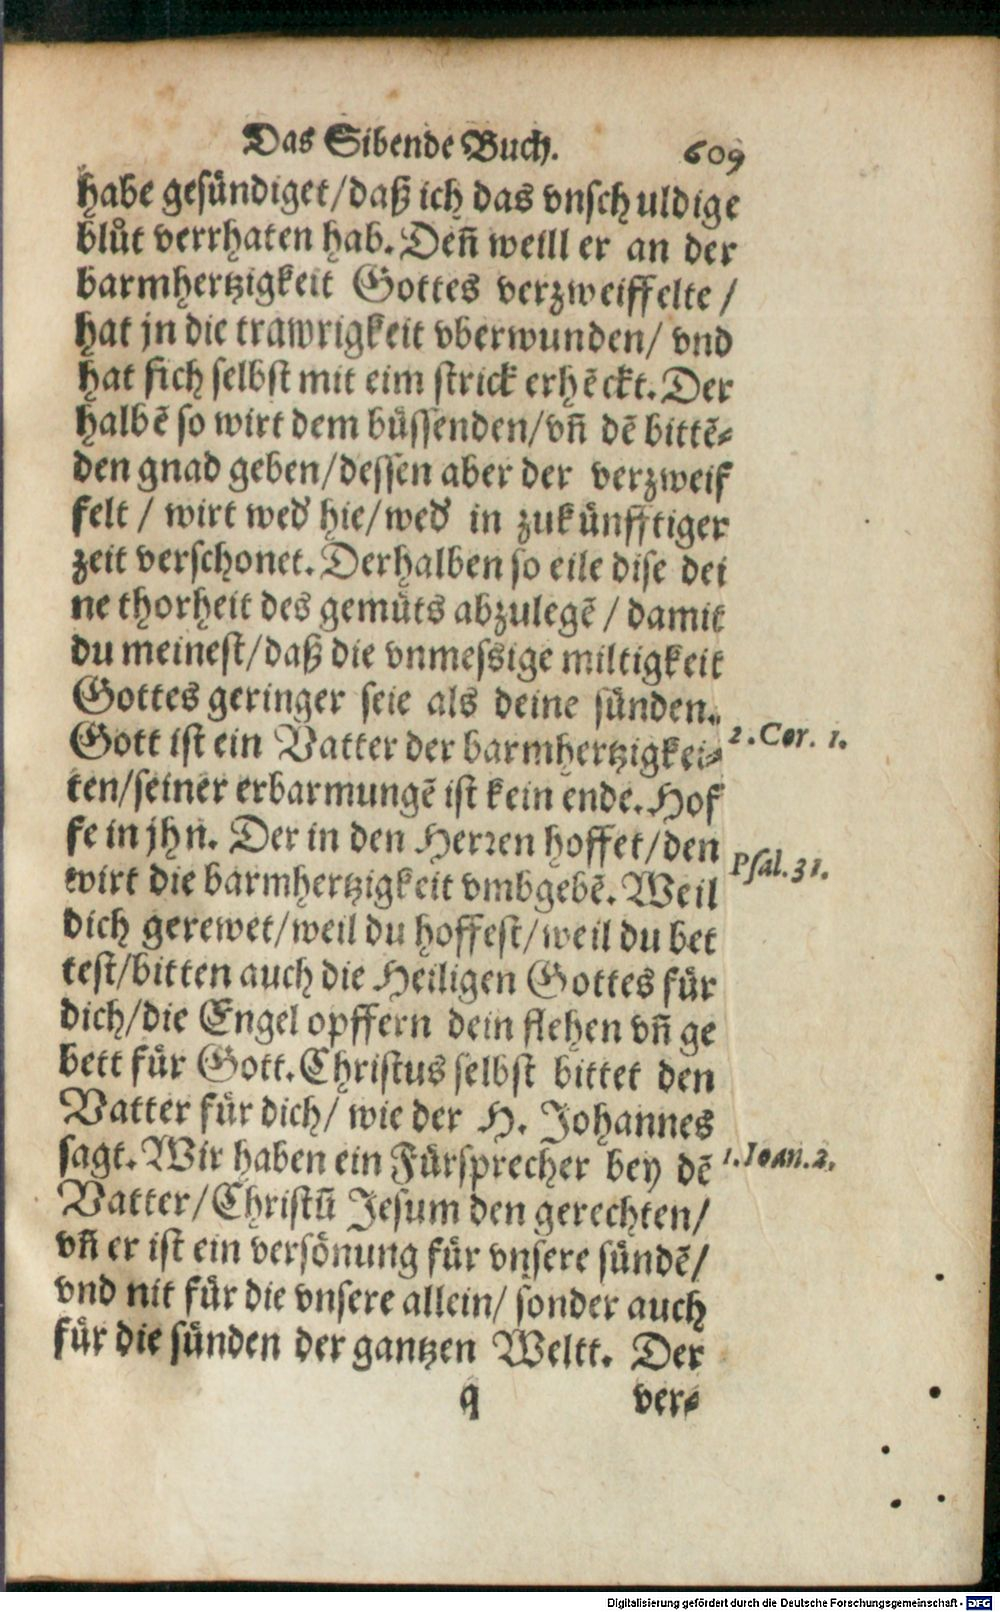 Das Sibende Buch. 609
habe gesündiget/daß ich das vnschuldige
blůt verrhaten hab. Deñ weill er an der
barmhertzigkeit Gottes verzweiffelte/
hat jn die trawrigkeit vberwunden/ vnd
hat sich selbst mit eim strick erhēckt. Der
halbē so wirt dem büssenden/vñ dē bittē-
den gnad geben/dessen aber der verzweif
felt/ wirt wed' hie/wed' in zukünfftiger
zeit verschonet. Derhalben so eile dise dei
ne thorheit des gemüts abzulegē/ damit
du meinest/daß die vnmessige miltigkeit
Gottes geringer seie als deine sünden.
Gott ist ein Vatter der barmhertzigkei- 2. Cor. 1.
ten/seiner erbarmungē ist kein ende. Hof
fe in jhn. Der in den Herꝛen hoffet/den
wirt die barmhertzigkeit vmbgebē. Weil Psal. 31.
dich gerewet/weil du hoffest/weil du bet
test/bitten auch die Heiligen Gottes für
dich/die Engel opffern dein flehen vñ ge
bett für Gott. Christus selbst bittet den
Vatter für dich/ wie der H. Johannes
sagt. Wir haben ein Fürsprecher bey dē 1. Ioan. 2.
Vatter/Christū Jesum den gerechten/
vñ er ist ein versönung für vnsere sündē/
vnd nit für die vnsere allein/ sonder auch
für die sünden der gantzen Weltt. Der
q ver-
Digitalisierung gefördert durch die Deutsche Forschungsgemeinschaft - DFG